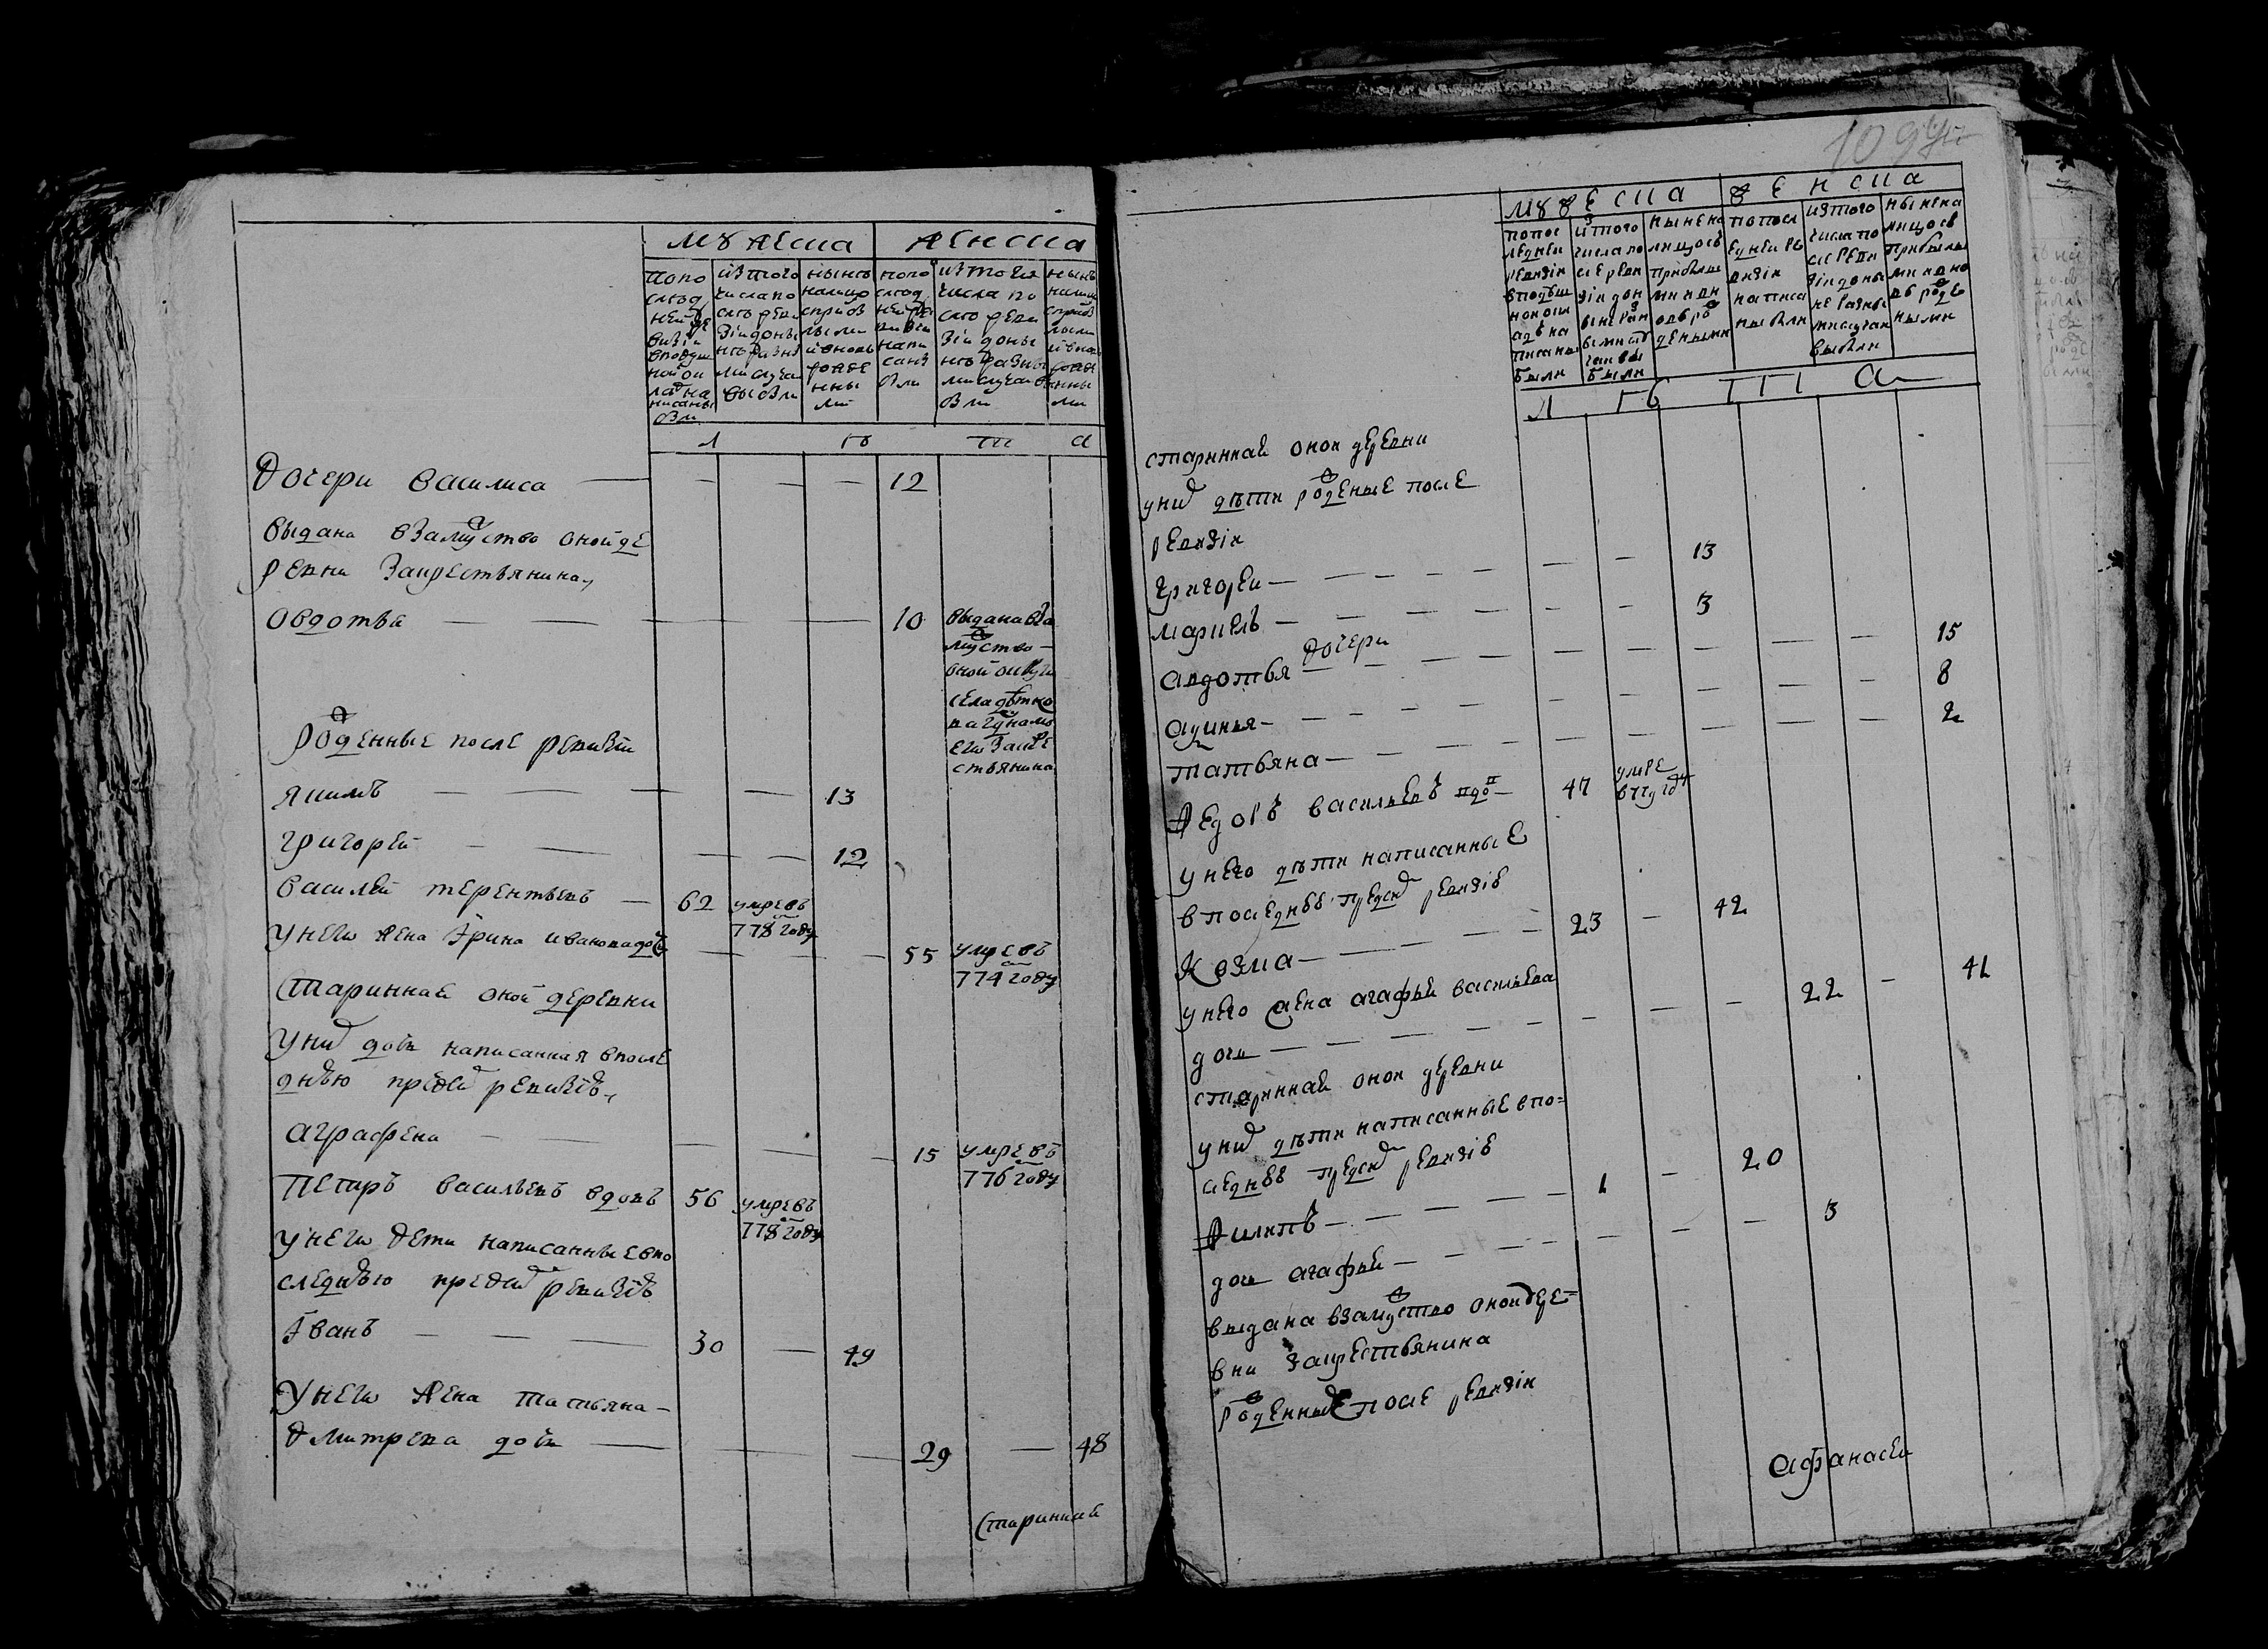 мужеска женска
попо
след
ней ре
визіи
в подуш
ной ок
лад на
писаны
были
из того
числа по
сле реви
зіи до ны
не разны
ми случа
выбыли
ныне
на лицо
с прибы
лыми
и вновь
рожде
нны
ми
попо
след
ней ре
визіи
напи
саны
были
из того
числа по
сле реви
зіи до ны
не разны
ми случа
были
ныне
налиц
с приб
лыми
и внов
рожде
нны
ми
л ѣ т а
дочери василиса — — — — 12
выдана взамужство оной де
ревни закрестьянина,
овдотья — — — 10 выдана вза
мужство —
оной округи
села
его закре
стьянина
рожденные после ревизіи
якимъ — — — — 13
григорей — — — — 12
василей терентьевъ — 62 умре въ
778 году
у него жена ѣрина иванова дочь — — — 55 умре въ
774 году
стариннай оной деревни
у них дочь написанная в после
днюю пред сим ревизію,
аграфена — — — — — 15 умре въ
776 году
петръ васильевъ вдовъ 56 умре въ
778 году
у него дети написанные в по
следнюю пред сим ревизію
іванъ — — — 30 — 49
у него жена татьяна —
дмитрева дочь — — — — 29 — 48
стариннай
109
мужеска женска
попос
ледней
ревизіи
в подуш
ном ок
ладе на
писаны
были
из того
числа по
сле реви
зіи до н
ыне раз
ными сл
чаи вы
были
ныне на
лицо съ
прибылы
ми и вн
овь ро
ждеными
по посл
едней ре
визіи
написа
ны были
из того
числа по
сле реви
зіи до ны
не разны
ми случаи
выбыли
ныне на
лицо съ
прибылы
ми и вно
вь рожде
ными
л ѣ т а
стариннай оной деревни
у них дѣти рожденые после
ревизіи
григорей — — — — — — — 13
маркелъ — — — — — — — 3
дочери
авдотья — — — — — — — — — 15
акулинья — — — — — — — — 8
татьяна — — — — — — — — 2
ѳедоръ васильевъ вдов — 47 умре
в году
у него дѣти написанные
в последнею пред сим ревизію
козма — — — — — 23 — 42
у него жена агафья васильева
дочь — — — — — — — — 22 — 41
стариннай оной деревни
у них дѣти написанные в по=
следнею пред сим ревизію
ѳилипъ — — — — — 1 — 20
дочь агафья — — — — — — — 3
выдана взамужство оной дере=
вни закрестьянина
рожденные после ревизіи
афанасей